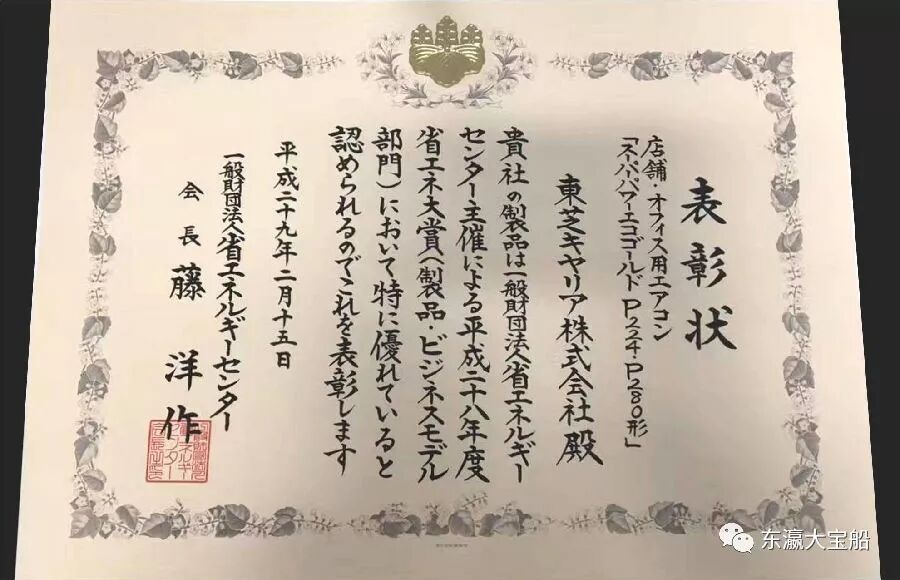 表彰状
店舗・オフィス用エアコン
「スーパーパワーエコゴールド P224・P280形」
東芝キヤリア株式会社 殿
貴社の製品は一般財団法人省エネルギー
センター主催による平成二十八年度
省エネ大賞(製品・ビジネスモデル
部門)において特に優れていると
認められるのでこれを表彰します
平成二十九年二月十五日
一般財団法人省エネルギーセンター
会長 藤 洋作
东瀛大宝船